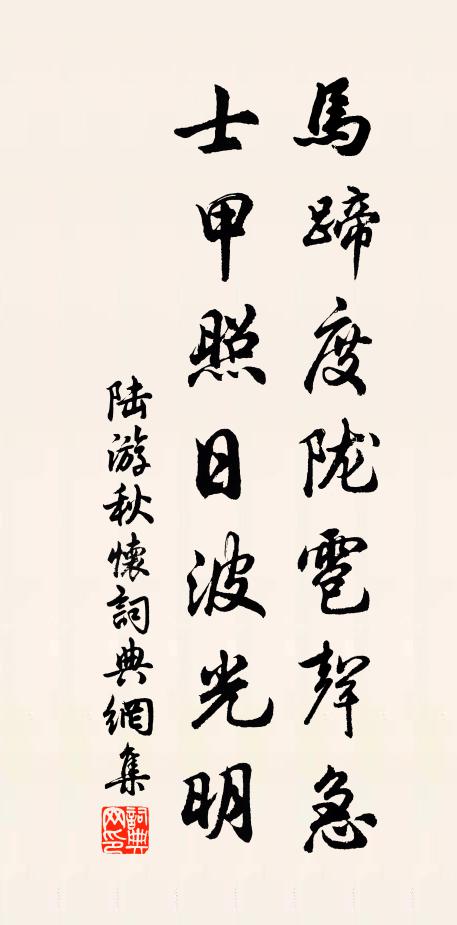 馬蹄度陇雹聲急
士甲照日波光明
陆游秋懷詞典網集
詞典网印